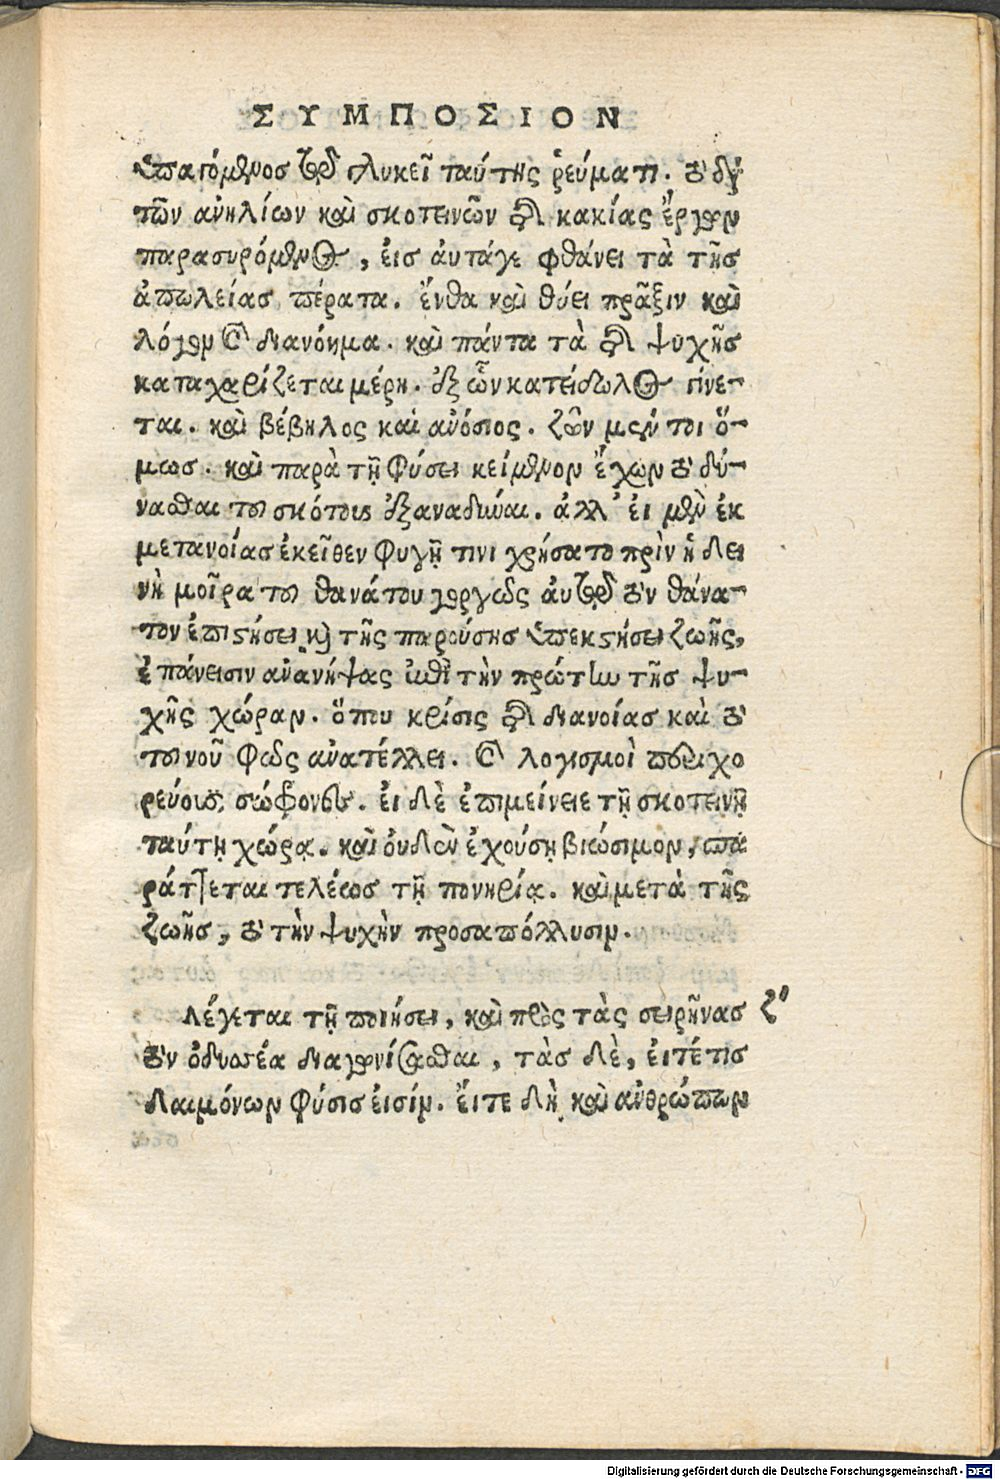 ΣΥΜΠΟΣΙΟΝ
ἐπαγόμενος τῷ γλυκεῖ ταύτης ῥεύματι. ὑπὸ
τῶν ἀνηλίων καὶ σκοτεινῶν τῆς κακίας ἔργων
παρασυρόμενος, εἰς αὐτάγε φθάνει τὰ τῆς
ἀπωλείας πέρατα. ἔνθα καὶ θύει πρᾶξιν καὶ
λόγον καὶ διανόημα. καὶ πάντα τὰ τῆς ψυχῆς
καταχαρίζεται μέρη. ἐξ ὧν κατείδωλος γίνε-
ται. καὶ βέβηλος καὶ ἀνόσιος. ζῶν μέν τοι ὅ-
μως. καὶ παρὰ τῇ φύσει κείμενον ἔχων τὸ δύ-
νασθαι τοῦ σκότους ἐξαναδῦναι. ἀλλ' εἰ μὲν ἐκ
μετανοίας ἐκεῖθεν φυγῇ τινι χρήσατο πρὶν ἡ δει
νὴ μοῖρα τοῦ θανάτου γοργῶς αὐτῷ τὸν θάνα-
τον ἐπιστήσει καὶ τῆς παρούσης ἀπεκστήσει ζωῆς,
ἐπάνεισιν ἀνανήψας ἐπὶ τὴν πρώτην τῆς ψυ-
χῆς χώραν. ὅπου κρίσις τῆς διανοίας καὶ τὸ
τοῦ νοῦ φῶς ἀνατέλλει. καὶ λογισμοὶ περιχο
ρεύουσι σώφρονες. εἰ δὲ ἐπιμείνειε τῇ σκοτεινῇ
ταύτῃ χώρᾳ. καὶ οὐδὲν ἐχούσῃ βιώσιμον, σπα
ράττεται τελέως τῇ πονηρίᾳ. καὶ μετὰ τῆς
ζωῆς, καὶ τὴν ψυχὴν προσαπόλλυσιν.
Λέγεται τῇ ποιήσει, καὶ πρὸς τὰς σειρῆνας ζ'
τὸν ὀδυσσέα διαγωνίσασθαι, τὰς δὲ, εἰτέτις
δαιμόνων φύσις εἰσίν. εἴτε δὴ καὶ ἀνθρώπων